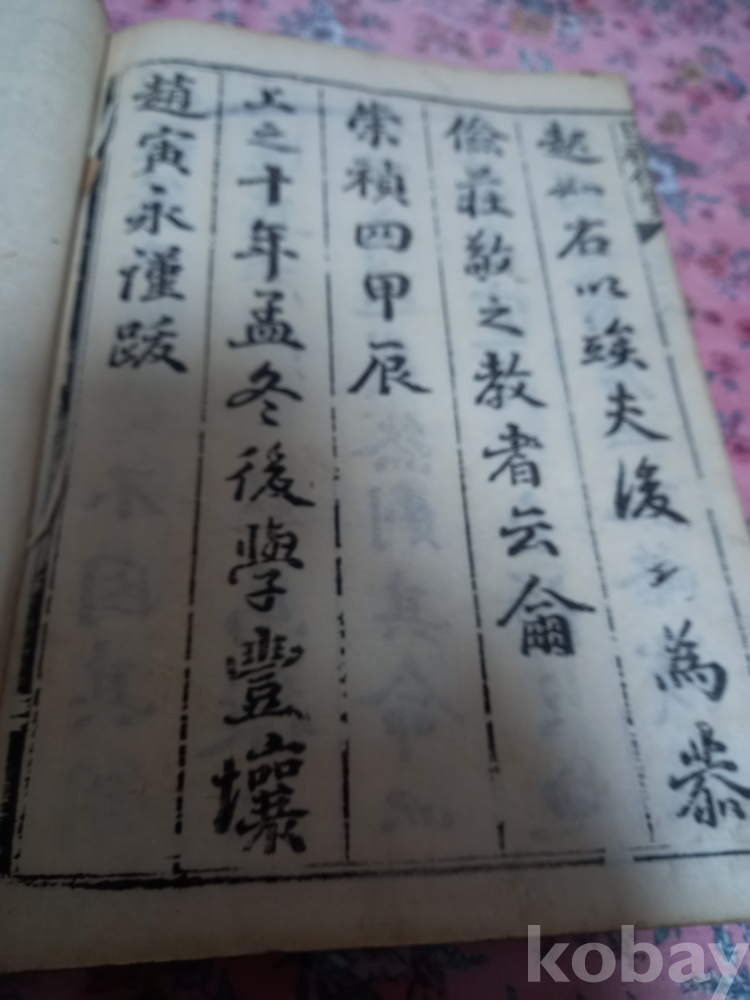 起如右以竢夫後之為恭
儉莊敬之教者云爾
崇禎四甲辰
上之十年孟冬後學豐壤
趙寅永謹跋
kobay